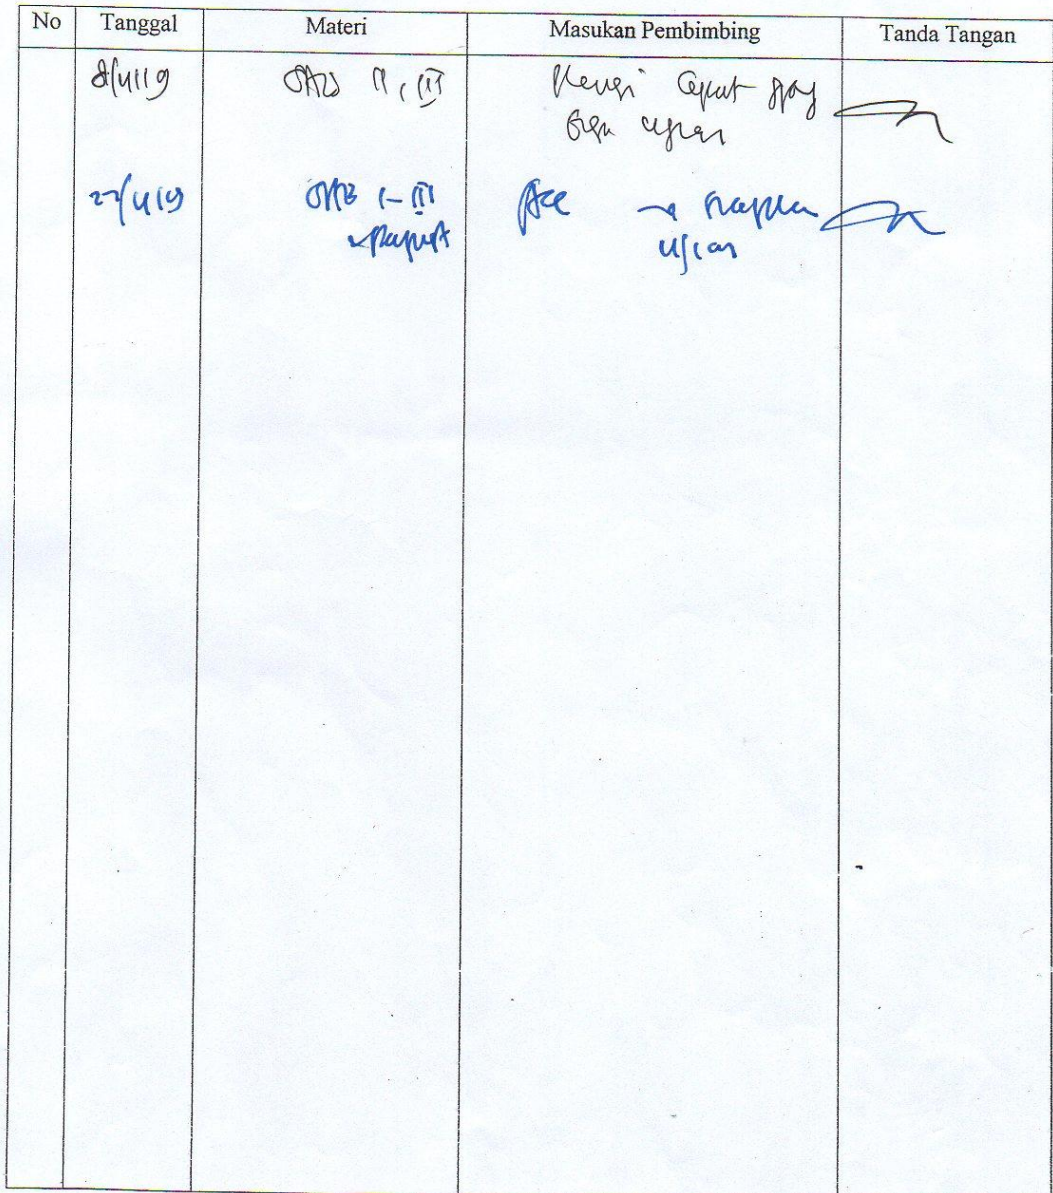 No Tanggal Materi Masukan Pembimbing Tanda Tangan
8/4/19 BAB II, III Revisi Cepat
ujian
22/4/19 BAB I-III Acc → siapkan
ujian